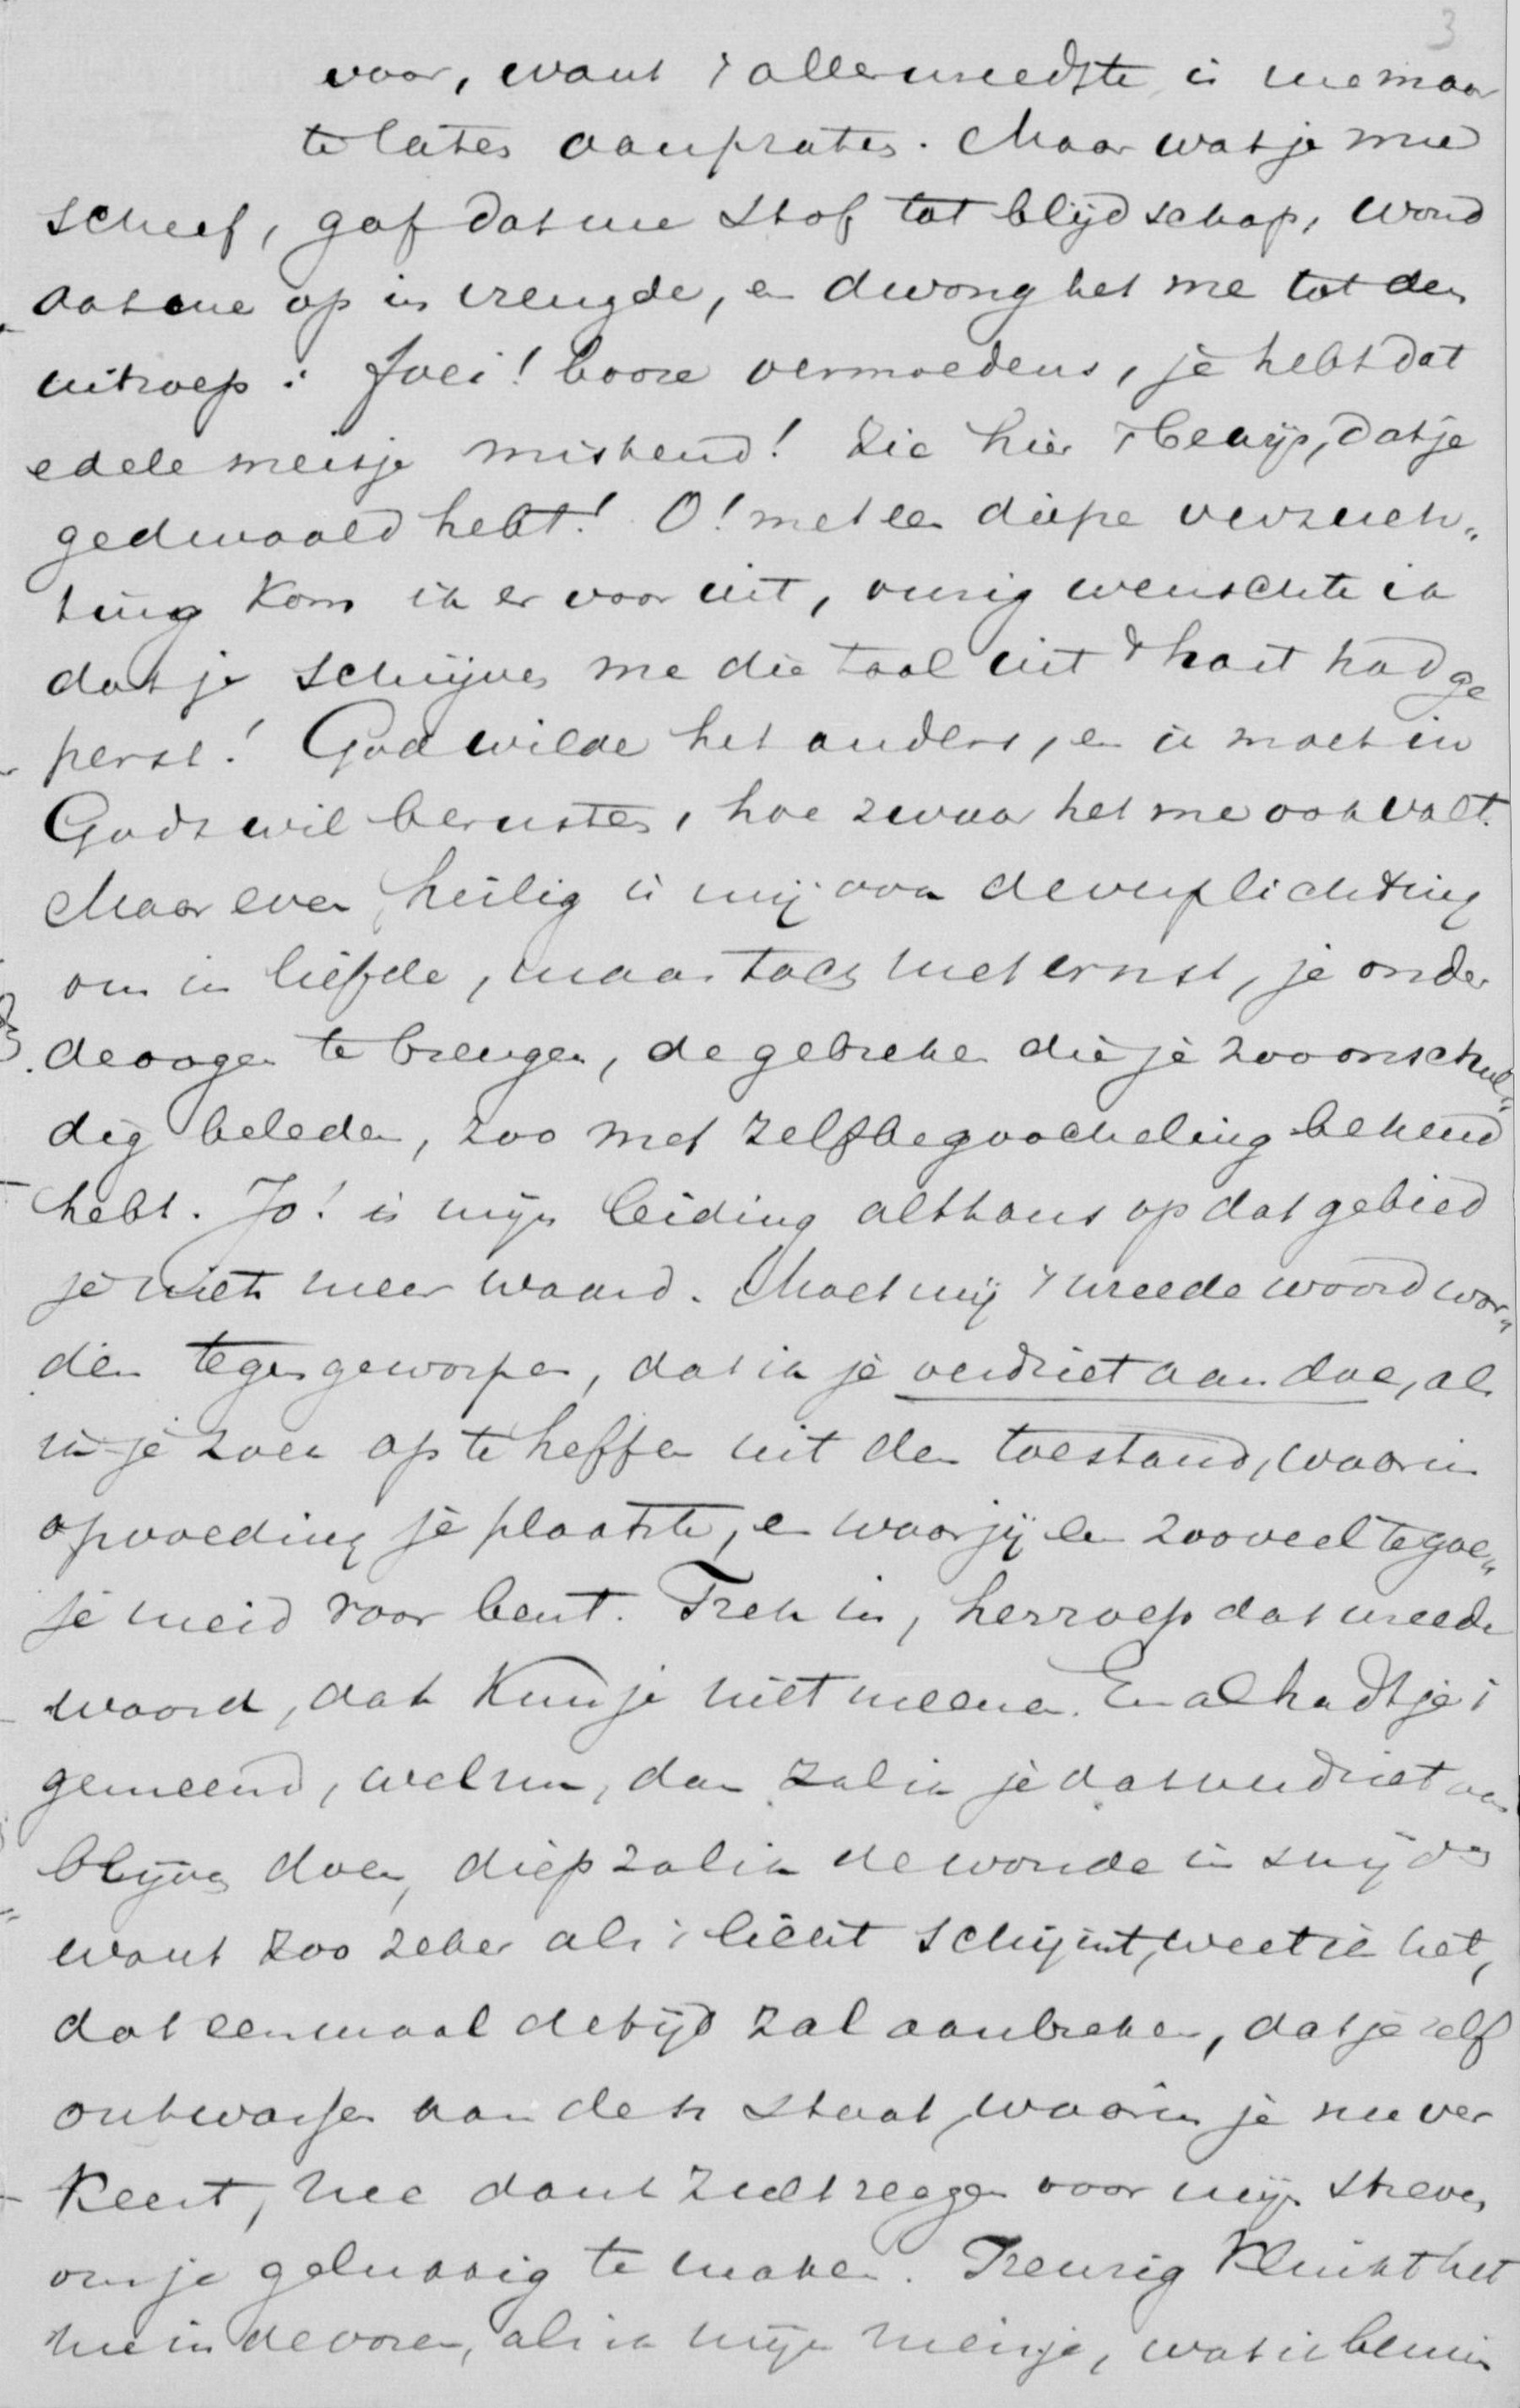 3
voor, want 't allerwreedste is me maar
te laten aanpraten. Maar wat je me
schreef, gaf dat me stof tot blijdschap, wond
dat me op in vreugde, en dwong het me tot den
uitroep: Foei! booze vermoedens, je hebt dat
edele meisje miskend! Zie hier 't bewijs, dat je
gedwaald hebt! O! met een diepe verzuch„
ting kom ik er voor uit, vurig wenschte ik
dat je schrijven me die taal uit 't hart had ge
perst! God wilde het anders, en ik moet in
Gods wil berusten, hoe zwaar het me ook valt.
Maar even heilig is mij ook de verplichting
om in liefde, maar toch met ernst, je onder
de oogen te brengen, de gebreken die je zoo onschul„
dig beleden, zoo met zelfbegoocheling bekend
hebt. Jo! is mijn leiding althans op dat gebied
je niets meer waard. Moet mij 't wreede woord wor„
den tegengeworpen, dat ik je verdriet aandoe, als
ik je zoek op te heffen uit den toestand, waarin
opvoeding je plaatste, en waar jij een zooveel te goe„
je meid voor bent. Trek in, herroep dat wreede
woord, dat kun je niet meenen. En al hadt je 't
gemeend, welnu, dan zal ik je dat verdriet aan
blijven doen, diep zal ik de wonde in snijden
want zoo zeker als 't licht schijnt, weet ik het,
dat eenmaal de tijd zal aanbreken, dat je zelf
ontworsen aan den staat, waarin je nu ver
keert, me dank zult zeggen voor mijn streven
om je gelukkig te maken. Treurig klinkt het
me in de ooren, als ik mijn meisje, wat ik bemin